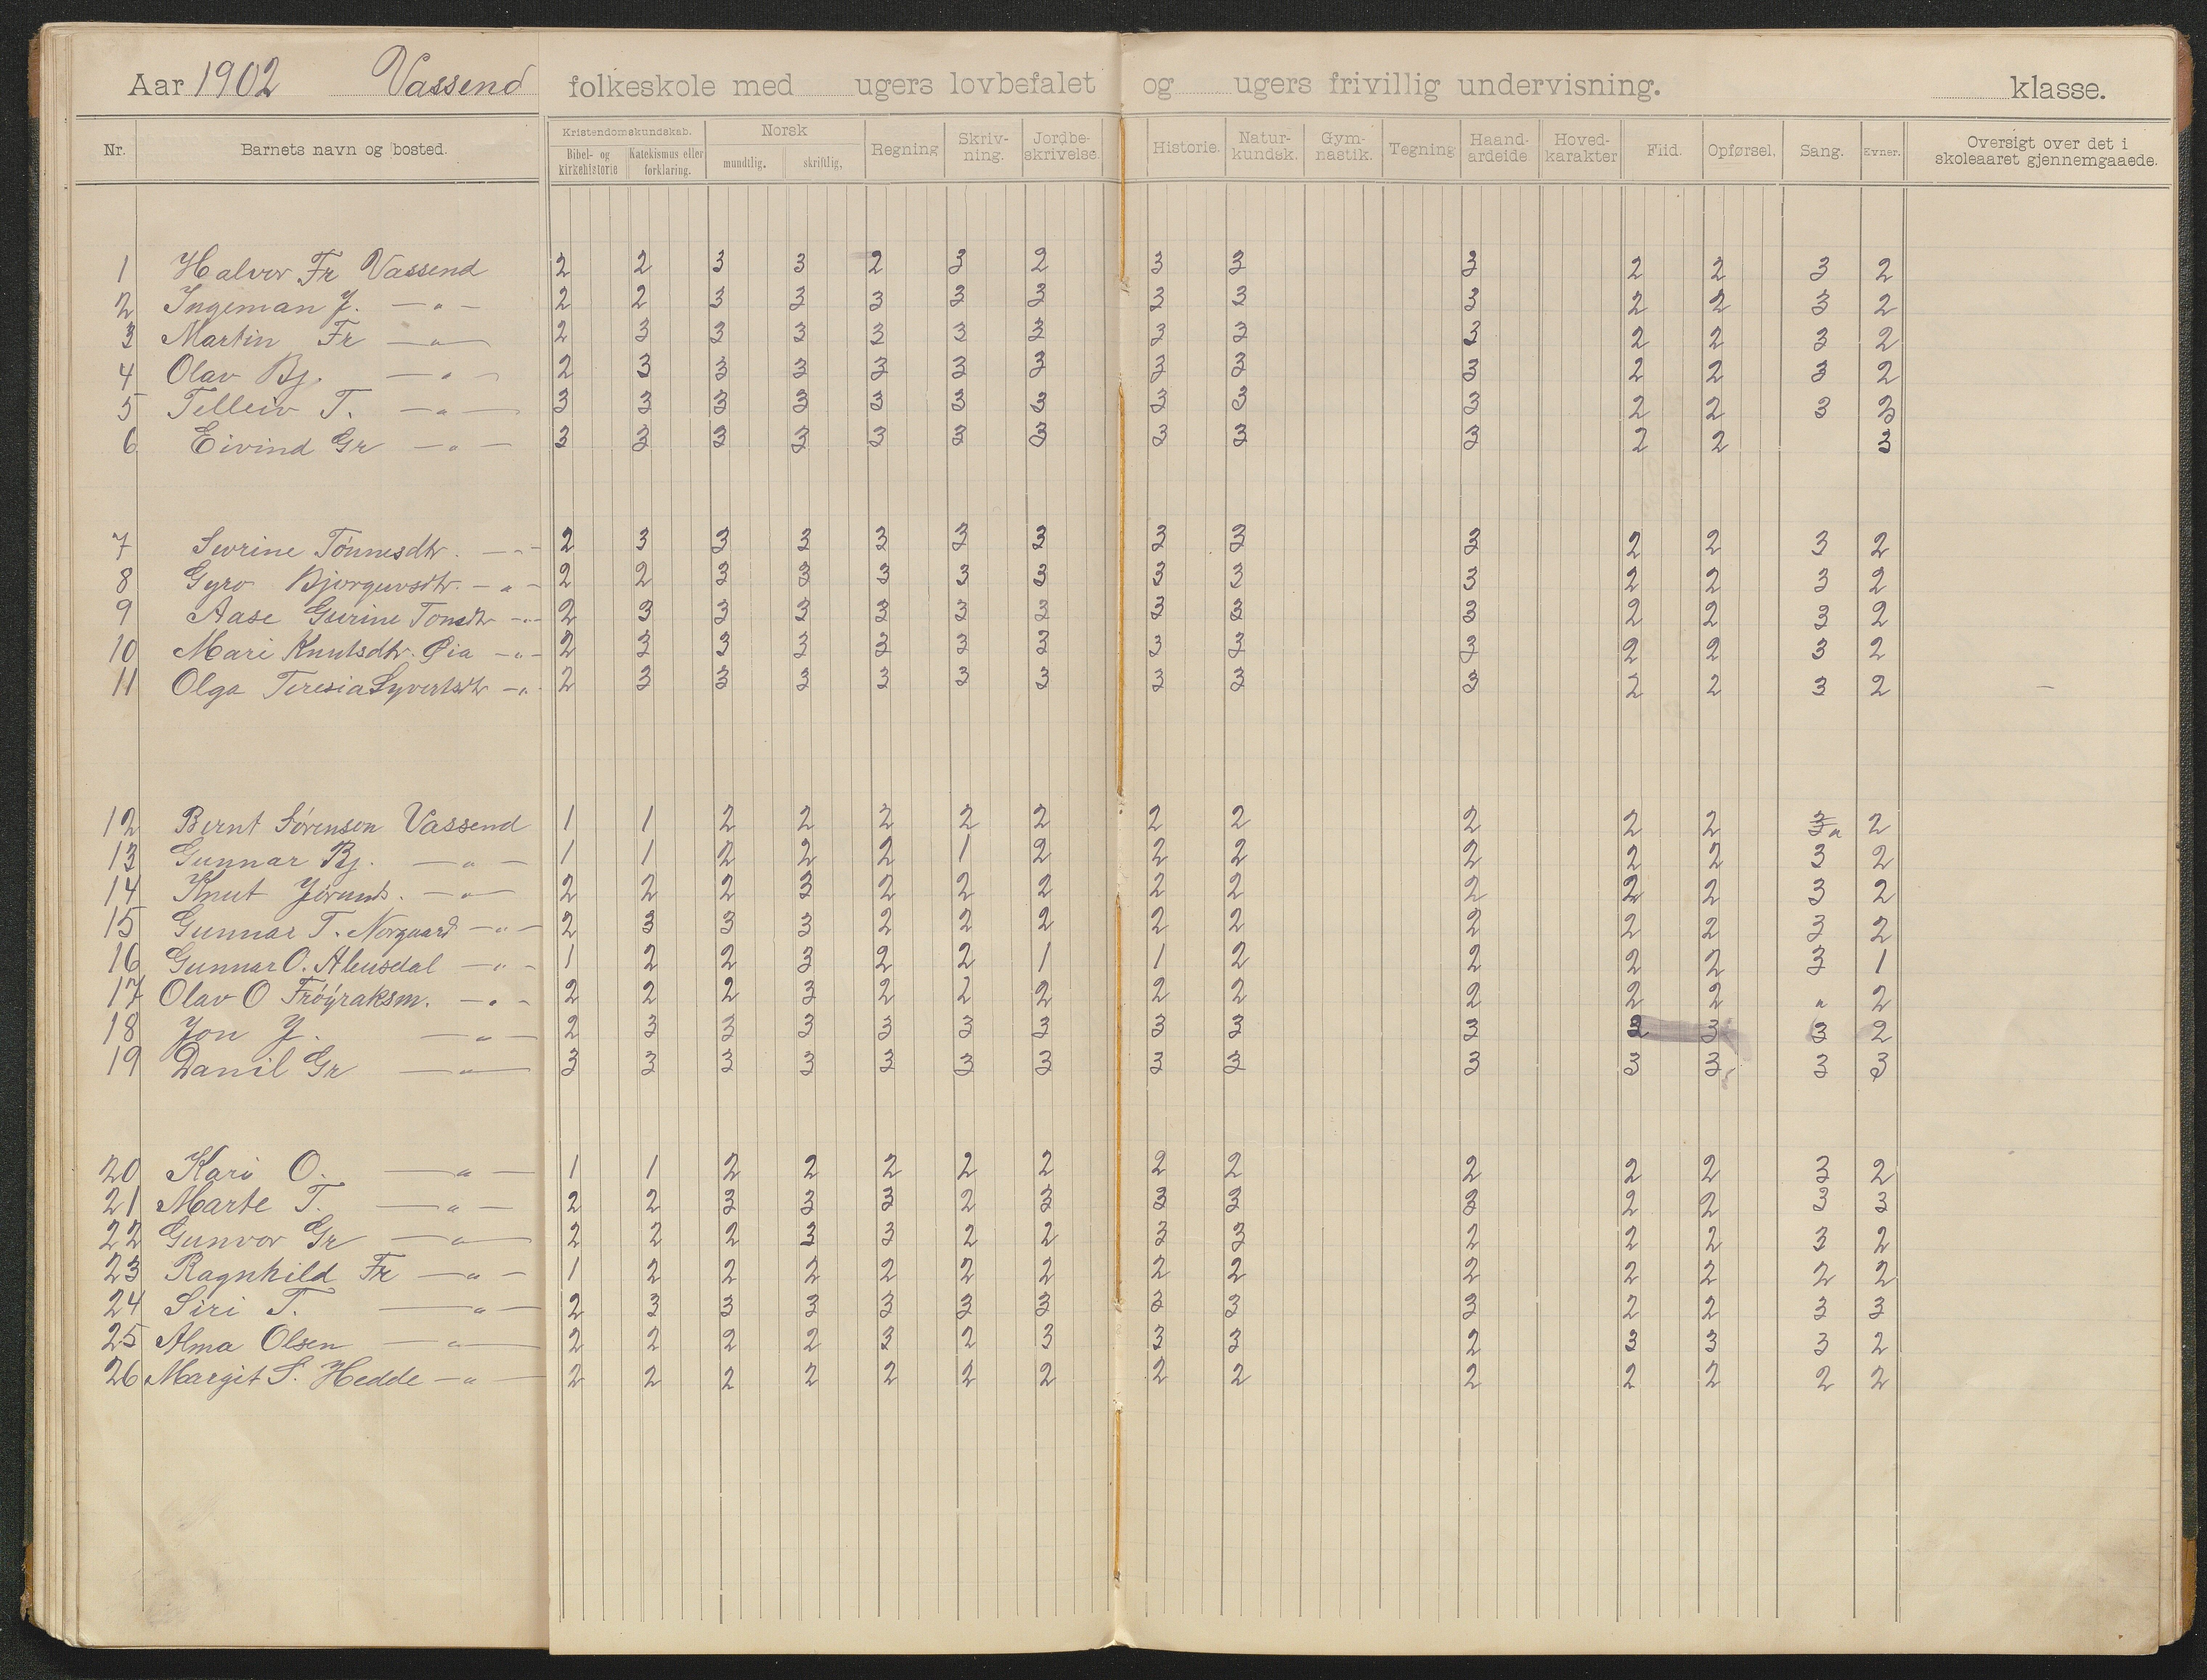 Aar 1902 Vassend folkeskole med ugers lovbefalet og ugers frivillig undervisning. klasse.
Nr. Barnets navn og bosted. Kristendomskundskab. Bibel- og kirkehistorie Katekismus eller forklaring. Norsk mundtlig. skriftlig. Regning Skriv-ning. Jordbe-skrivelse. Historie. Natur-kundsk. Gym-nastik. Tegning Haand-ardeide Hoved-karakter Flid. Opførsel. Sang. Evner. Oversigt over det i skoleaaret gjennemgaaede.
1 Halvor Fr Vassend 2 2 3 3 2 3 2 3 3 3 2 2 3 2
2 Ingeman J. — " — 2 2 3 3 3 3 3 3 3 3 2 2 3 2
3 Martin Fr — " — 2 3 3 3 3 3 3 3 3 3 2 2 3 2
4 Olav Bj. — " — 2 3 3 3 3 3 3 3 3 3 2 2 3 2
5 Telleiv T. — " — 3 3 3 3 3 3 3 3 3 3 2 2 3 3
6 Eivind Gr — " — 3 3 3 3 3 3 3 3 3 3 2 2 3
7 Tønnesdtr. — " — 2 3 3 3 3 3 3 3 3 3 2 2 3 2
8 Gyro Bjorguvsdtr. — " — 2 2 3 3 3 3 3 3 3 3 2 2 3 2
9 Aase Gurine — " — 2 3 3 3 3 3 3 3 3 3 2 2 3 2
10 Mari Knutsdtr. Øia — " — 2 3 3 3 3 3 3 3 3 3 2 2 3 2
11 Olga Teresia Syvertsdtr — " — 2 3 3 3 3 3 3 3 3 3 2 2 3 2
12 Bernt Sørenson Vassend 1 1 2 2 2 2 2 2 2 2 2 2 3 " 2
13 Gunnar Bj. — " — 1 1 2 2 2 1 2 2 2 2 2 2 3 2
14 Knut — " — 2 2 2 3 2 2 2 2 2 2 2 2 3 2
15 Gunnar T. Norgaard — " — 2 3 3 3 2 2 2 2 2 2 2 2 3 2
16 Gunnar O. — " — 1 2 2 3 2 2 1 1 2 2 2 2 3 1
17 Olav O Frøÿraksm. — " — 2 2 2 3 2 2 2 2 2 2 2 2 " 2
18 Jon J. — " — 2 3 3 3 3 3 3 3 3 3 3 3 3 2
19 Danil Gr — " — 3 3 3 3 3 3 3 3 3 3 3 3 3 3
20 Kari O. — " — 1 1 2 2 2 2 2 2 2 2 2 2 3 2
21 Marte T. — " — 2 2 3 3 3 2 3 3 3 3 2 2 3 3
22 Gunvor Gr — " — 2 2 2 3 3 2 2 3 3 2 2 2 3 2
23 Ragnhild Fr — " — 1 2 2 2 2 2 2 2 2 2 2 2 2 2
24 Siri T. — " — 2 3 3 3 3 3 3 3 3 3 2 2 3 3
25 Alma Olsen — " — 2 2 2 2 3 2 3 3 3 2 3 3 3 2
26 Margit S. Hedde — " — 2 2 2 2 2 2 2 2 2 2 2 2 2 2